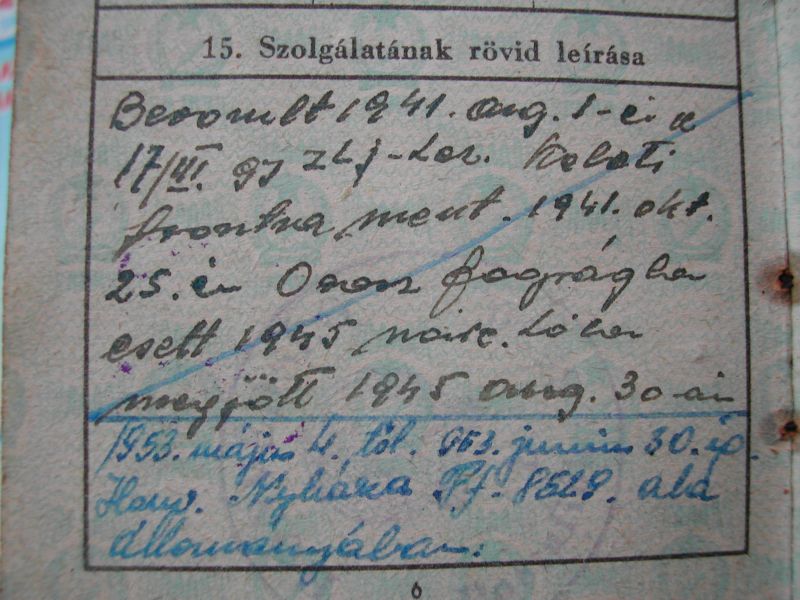 15. Szolgálatának rövid leírása
Bevonult 1941. aug. 1-én a
17/III. zlj-hoz. Keleti
frontra ment. 1941. okt.
25.én Orosz fogságba
esett 1945 márc. hóba
megjött 1945 aug. 30-án
1953. május 4. től. 953. junius 30. ig.
Honv. Nyháza Pf. 8529. ala
állományában.
6